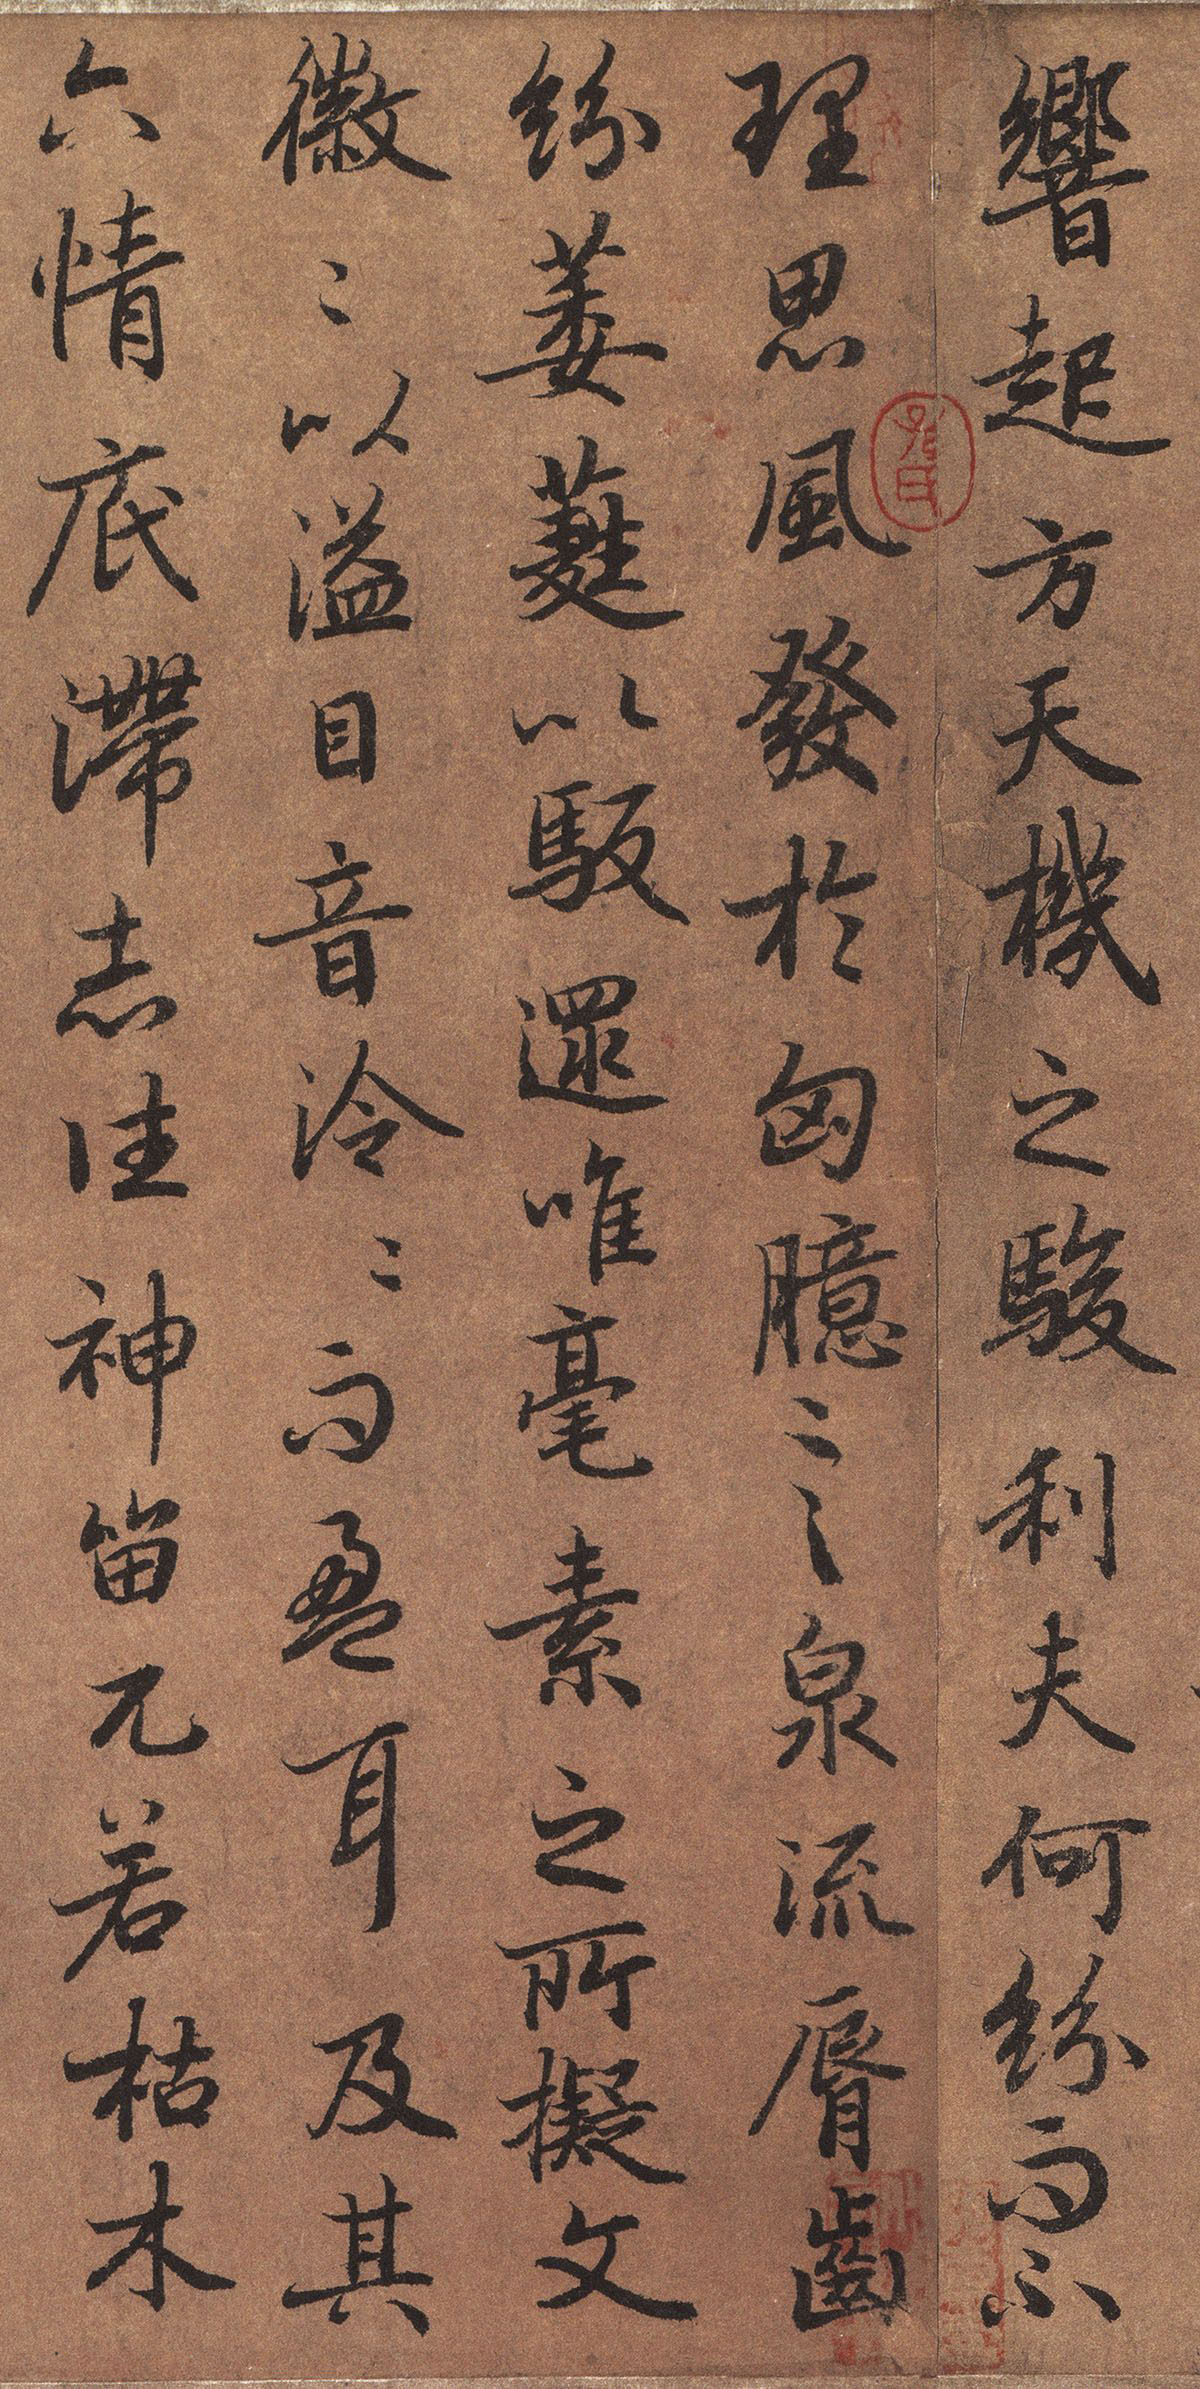 響起方天機之駿利夫何紛而不
理思風發於匈臆〻之泉流脣齒
紛葳蕤以馺遝唯毫素之所擬文
徽〻以溢目音泠〻而盈耳及其
六情底滯志往神留兀若枯木